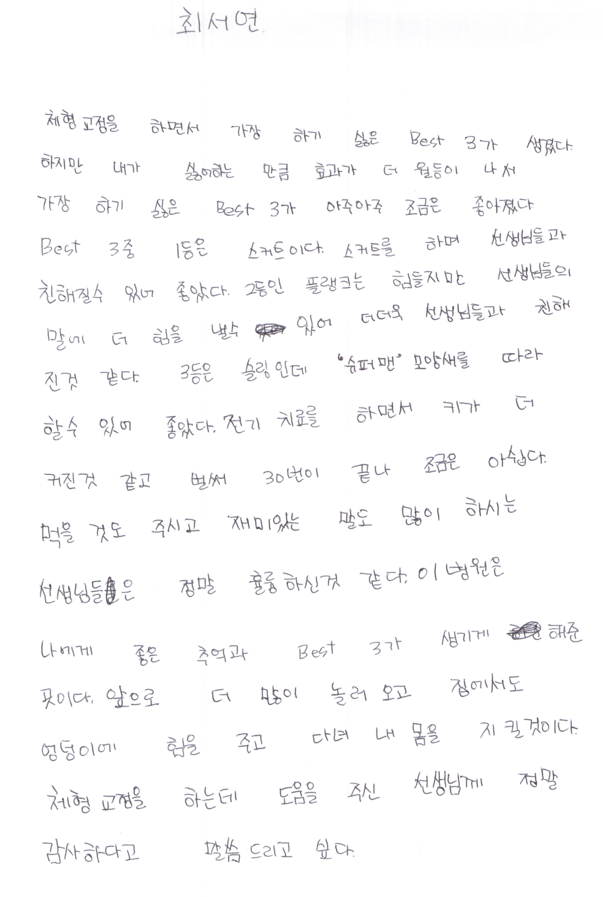 최서연.
체형 교정을 하면서 가장 하기 싫은 Best 3가 생겼다.
하지만 내가 싫어하는 만큼 효과가 더 월등이 나서
가장 하기 싫은 Best 3가 아주아주 조금은 좋아졌다
Best 3중 1등은 스커트이다. 스커트를 하며 선생님들과
친해질수 있어 좋았다. 2등인 플랭크는 힘들지만 선생님들의
말에 더 힘을 낼수 있어 더더욱 선생님들과 친해
진것 같다. 3등은 슬링인데 "슈퍼맨" 모양새를 따라
할수 있어 좋았다. 전기 치료를 하면서 키가 더
커진것 같고 벌써 30번이 끝나 조금은 아쉽다.
먹을 것도 주시고 재미있는 말도 많이 하시는
선생님들은 정말 훌륭하신것 같다. 이 병원은
나에게 좋은 추억과 Best 3가 생기게 해준
곳이다. 앞으로 더 많이 놀러 오고 집에서도
엉덩이에 힘을 주고 다녀 내 몸을 지킬것이다.
체형 교정을 하는데 도움을 주신 선생님께 정말
감사하다고 말씀드리고 싶다.